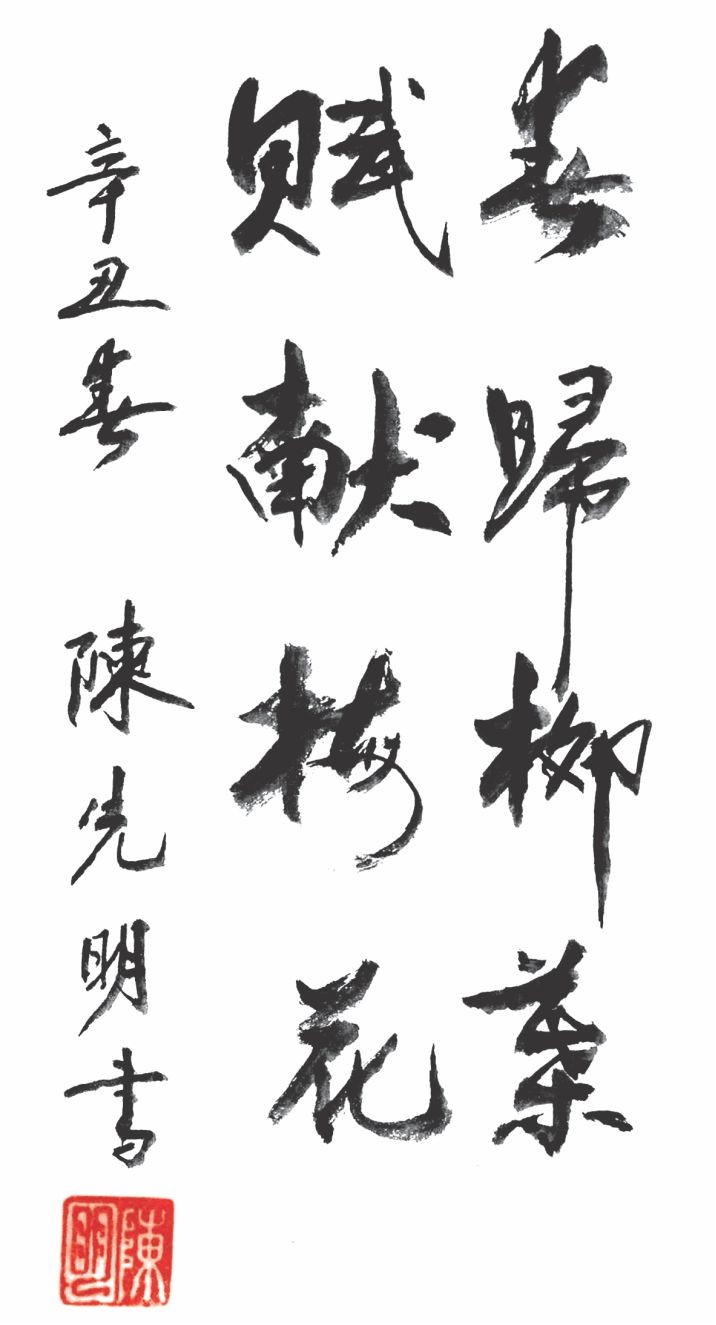 春歸柳葉
賦献梅花
辛丑春 陳先明書
陳明